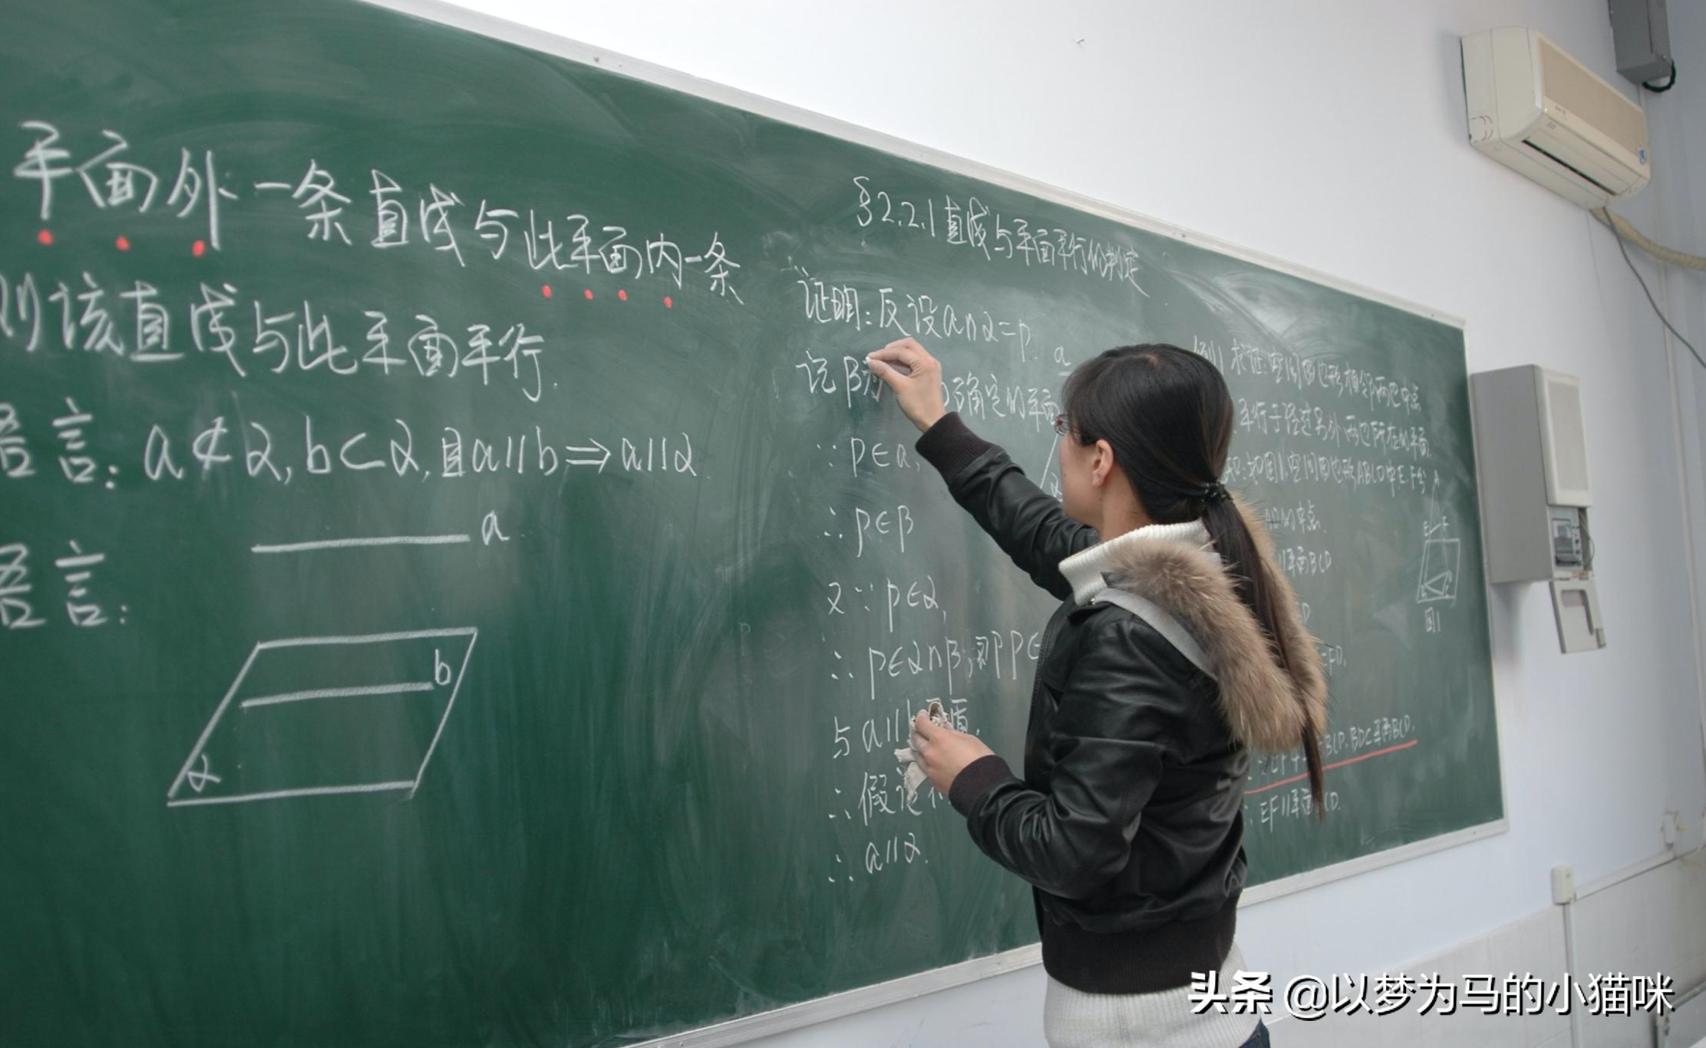 平面外一条直线与此平面内一条
则该直线与此平面平行.
语言: a⊄α, b⊂α, 且a∥b⇒a∥α
a
语言:
b
α
§2.2.1 直线与平面平行的判定
证明: 反设a∩α=P.
a
记β为 确定的平面
∵P∈a,
∴P∈β
又∵P∈α,
∴P∈α∩β, 即P∈
与a∥b矛盾.
∴假设不
∴a∥α.
例1 求证:空间四边形相邻两边中点
平行于经过另外两边所在的平面.
已知:如图1,空间四边形ABCD中E.F分
AD的中点.
∥平面BCD
E F
图1
BCD. BD⊂平面BCD.
∴EF∥平面BCD.
头条 @以梦为马的小猫咪